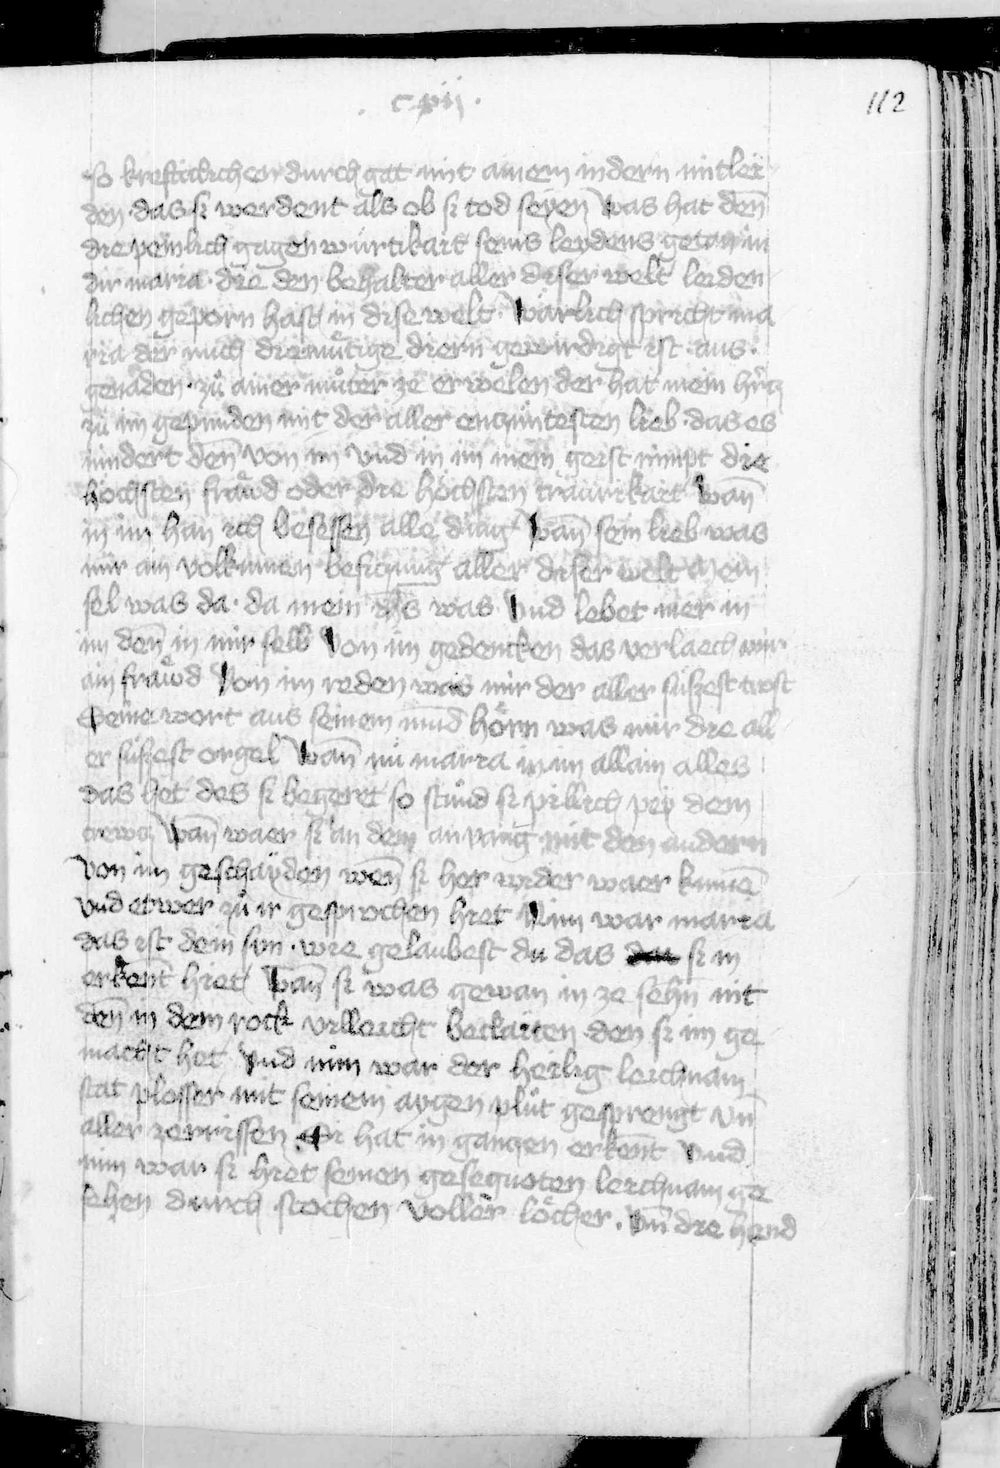 c xij
112
so krefticlichen durch gat mit ainem indern mitlei
den das si werdent als ob si tod seyen Was hat den̄
die peinlich gagenwürtikait seins leydens getan in
dir maria die den behalter aller diser welt leiden
lichen geporn hast in dise welt Warlich spricht ma
ria der mich diemütige diern gewirdigt ist aus
genaden zů ainer můter ze erwelen der hat mein
zů im gepunden mit der aller enczüntesten lieb das es
nindert den̄ von im vnd in im mein geist nimpt die
höchsten fräwd oder die höchsten traurikait Wan̄
in im han ich besessen alle ding Wan̄ sein lieb was
mir ain volkumen aller diser welt Mein
sel was da da mein was Vnd lebet mer in
im den̄ in mir selb Von im gedencken das verlaech mir
ain fräwd Von im reden was mir der aller süszest trost
Seine wort aus seinem mūd hörn was mir die all
er süszest orgel Wan̄ nu maria in im allain alles
das het des si begeret so stůnd si pillich pey dem
crewcz Wan̄ waer si an dem anuang mit den andern
von im geschayden wen̄ si her wider waer kumē
vnd etwer zů ir gesprochen hiet Nim war maria
das ist dein sun wie gelaubest du das si in
erkent hiet Wan̄ si was gewan in ze sehn̄ nit
den̄ in dem rock villeicht beclaiten den si im ge
macht het Vnd nim war der heilig leichnam
stat plosser mit seinem aygen plůt gesprengt vn̄
aller zerrissen Si hat in gangen erkent Vnd
nim war si hiet seinen gesegnoten leichnam ge
sehen durch stochen voller löcher. Vn̄ die hend